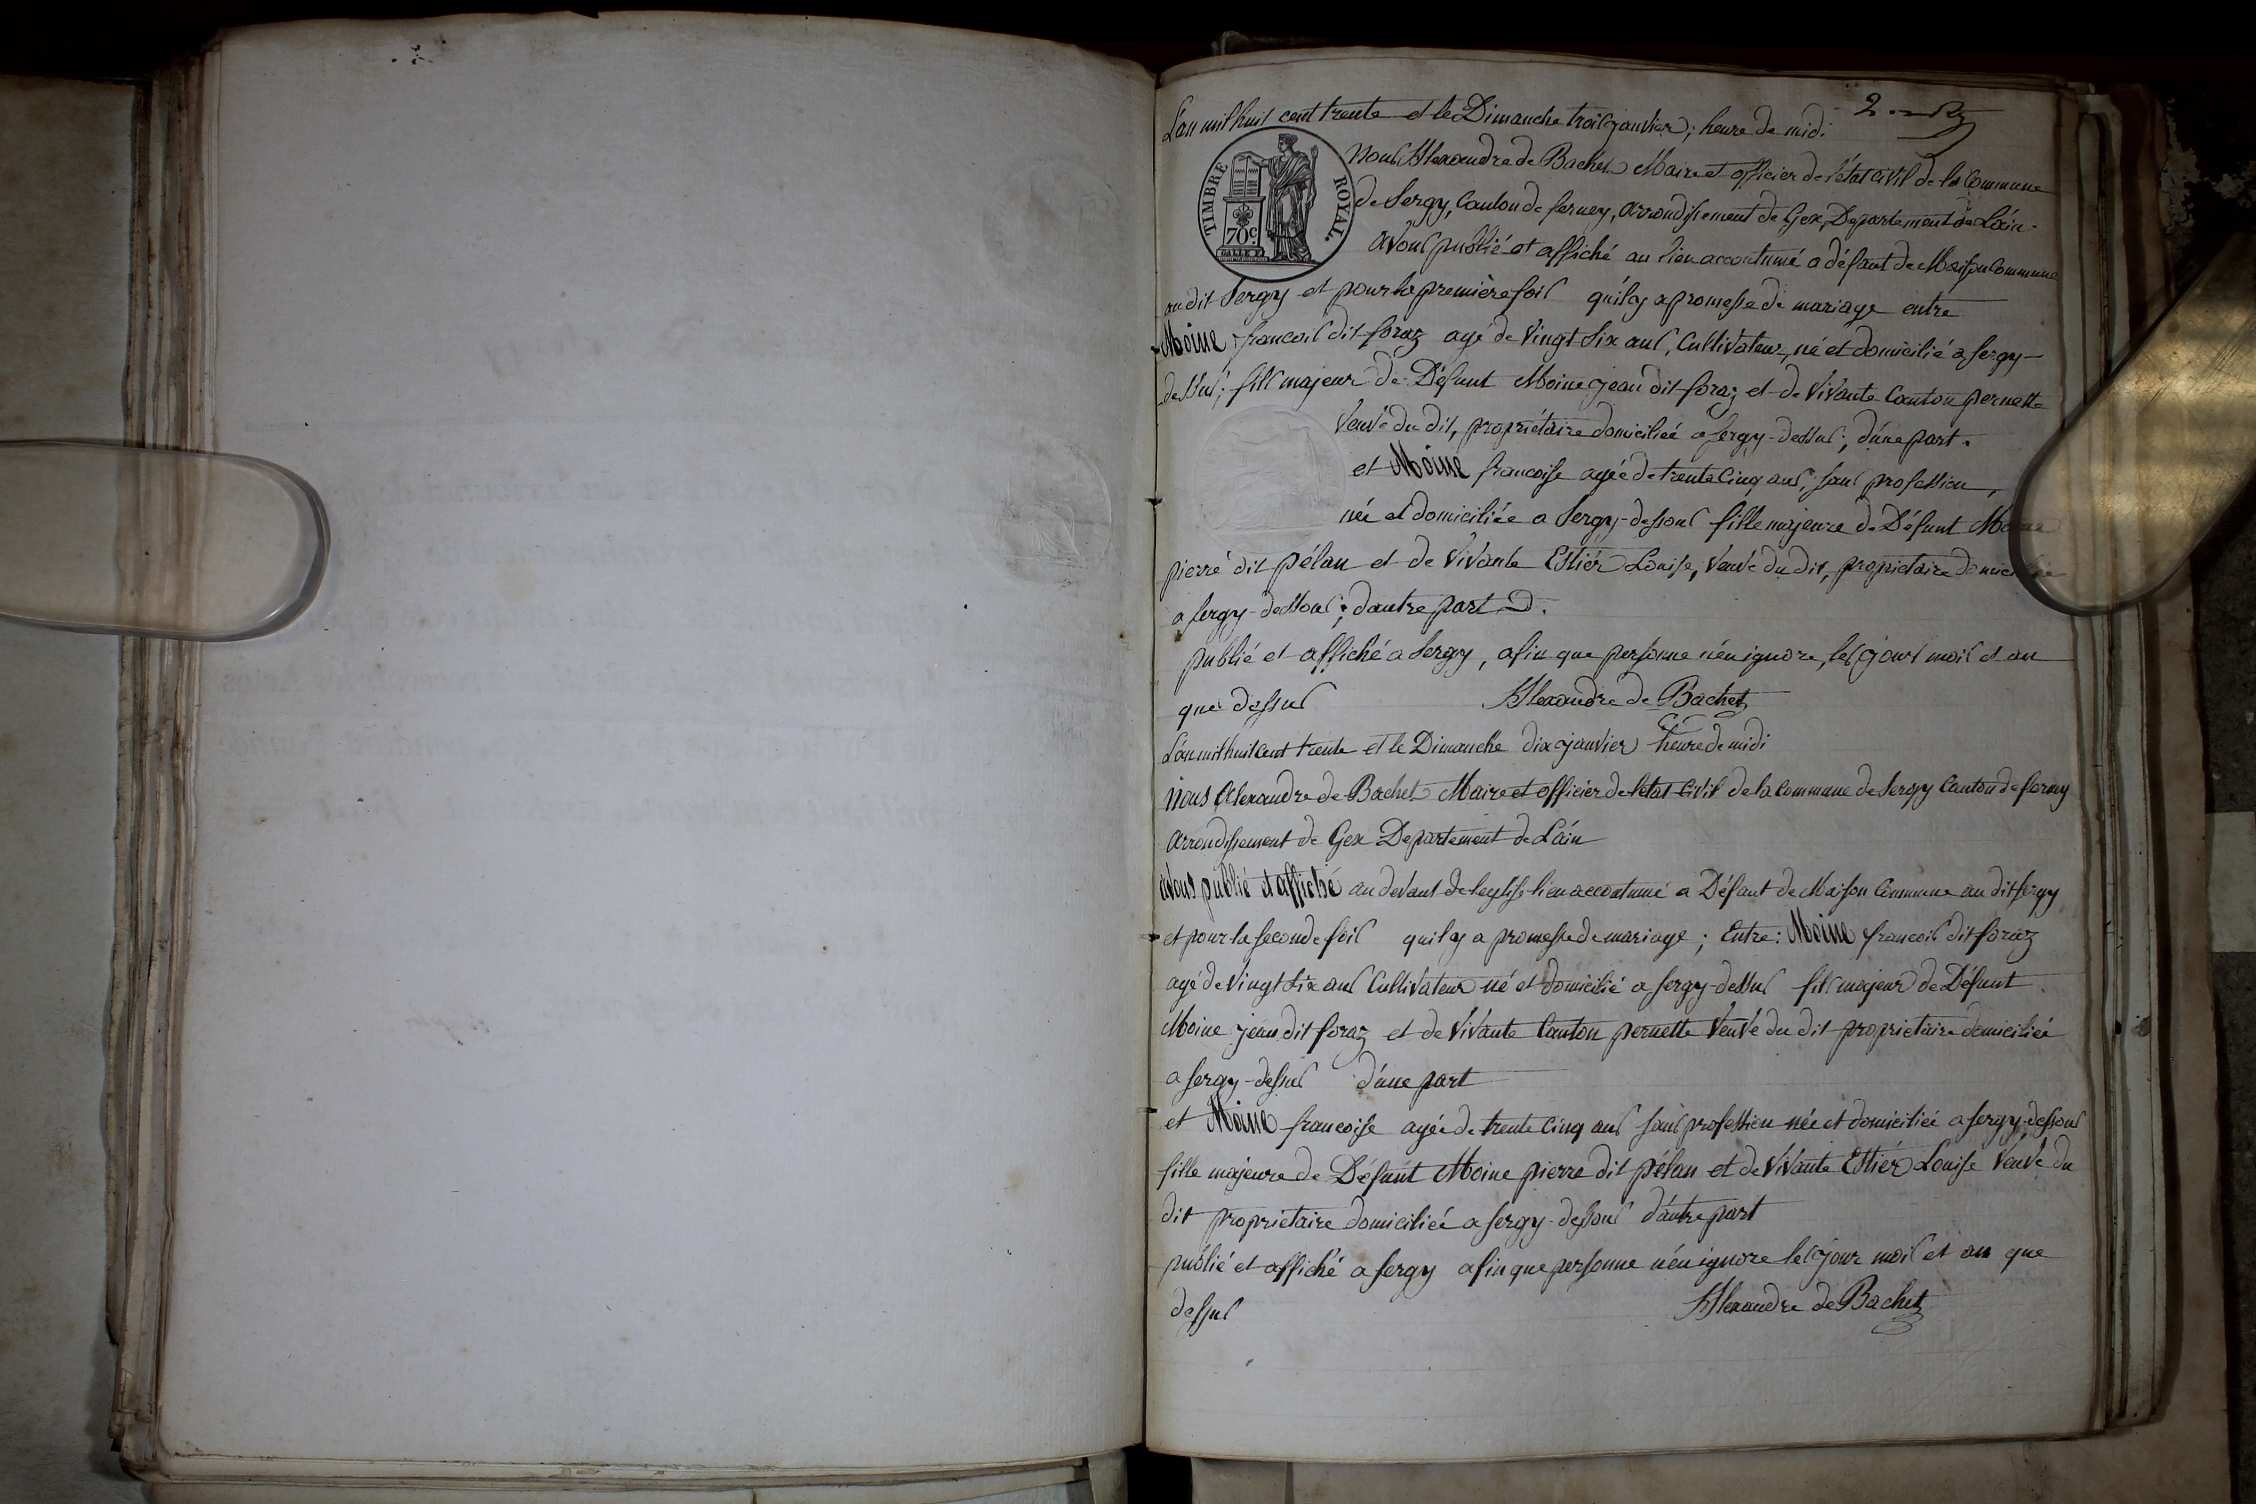 2.
L'an mil huit cent trente et le Dimanche trois janvier; heure de midi
TIMBRE ROYAL.
70c
Nous Alexandre de Bachet Maire et officier de l'état civil de la Commune
de Sergy, Canton de ferney, arrondissement de Gex, Departement de Láin.
avons publié et affiché au lieu accoutumé a défaut de Maison Commune
au dit Sergy et pour la première fois quil y a promesse de mariage entre
Moine francois dit foraz agé de vingt six ans, Cultivateur, né et domicilié a Sergy-
dessus; fils majeur de Défunt Moine jean dit foraz et de vivante Canton pernette
veuve du dit, propriétaire domiciliée a Sergy-dessus; d'une part.
et Moine francoise agée de trente cinq ans, sans profession,
née et domiciliée a Sergy-dessous fille majeure de Défunt Moine
pierre dit pélan et de vivante Estier Louise, veuve du dit, propriétaire domiciliée
a Sergy-dessous; d'autre part.
publié et affiché a Sergy, afin que personne n'en ignore, les jour mois et an
que dessus Alexandre de Bachet
L'an mil huit cent trente et le Dimanche dix janvier heure de midi
Nous Alexandre de Bachet Maire et officier de l'état Civil de la Commune de Sergy Canton de ferney
arrondissement de Gex Departement de Láin
avons publié et affiché au devant de leglise lieu accoutumé a Défaut de Maison Commune au dit Sergy
et pour la seconde fois quil y a promesse de mariage; Entre: Moine francois dit foraz
agé de vingt six ans Cultivateur né et domicilié a Sergy-dessus fils majeur de Défunt
Moine jean dit foraz et de vivante Canton pernette veuve du dit propriétaire domiciliée
a Sergy-dessus d'une part
et Moine francoise agée de trente cinq ans sans profession née et domiciliée a Sergy-dessous
fille majeure de Défunt Moine pierre dit pélan et de vivante Estier Louise veuve du
dit propriétaire domiciliée a Sergy-dessous d'autre part
publié et affiché a Sergy afin que personne n'en ignore les jour mois et an que
dessus Alexandre de Bachet